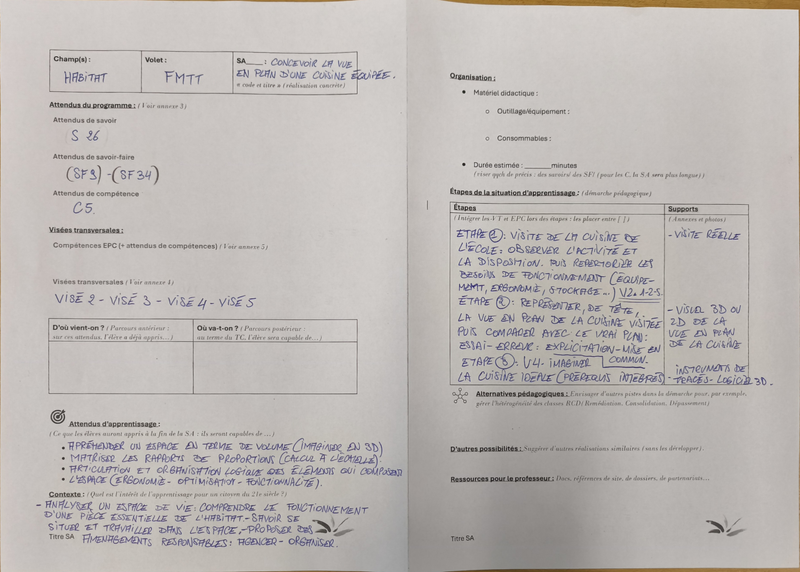 Champ(s) :
HABITAT
Volet :
FMTT
SA___ : CONCEVOIR LA VUE
EN PLAN D'UNE CUISINE ÉQUIPÉE.
« code et titre » (réalisation concrète)
Attendus du programme : (Voir annexe 3)
Attendus de savoir
S 26
Attendus de savoir-faire
(SF9) - (SF34)
Attendus de compétence
C5.
Visées transversales :
Compétences EPC (+ attendus de compétences) (Voir annexe 5)
Visées transversales (Voir annexe 4)
VISÉ 2 - VISÉ 3 - VISÉ 4 - VISÉ 5
D'où vient-on ? (Parcours antérieur :
sur ces attendus, l'élève a déjà appris…)
Où va-t-on ? (Parcours postérieur :
au terme du TC, l'élève sera capable de…)
Attendus d'apprentissage :
(Ce que les élèves auront appris à la fin de la SA : ils seront capables de …)
• APPRÉHENDER UN ESPACE EN TERME DE VOLUME (IMAGINER EN 3D)
• MAITRISER LES RAPPORTS DE PROPORTIONS (CALCUL A L'ECHELLE)
• ARTICULATION ET ORGANISATION LOGIQUE DES ÉLÉMENTS QUI COMPOSENT
• L'ESPACE (ERGONOMIE - OPTIMISATION - FONCTIONNALITÉ).
Contexte : (Quel est l'intérêt de l'apprentissage pour un citoyen du 21e siècle ?)
- ANALYSER UN ESPACE DE VIE: COMPRENDRE LE FONCTIONNEMENT
D'UNE PIÈCE ESSENTIELLE DE L'HABITAT.- SAVOIR SE
SITUER ET TRAVAILLER DANS L'ESPACE,- PROPOSER DES
Titre SA
AMENAGEMENTS RESPONSABLES: AGENCER - ORGANISER.
Organisation :
• Matériel didactique :
o Outillage/équipement :
o Consommables :
• Durée estimée : _______minutes
(viser qqch de précis : des savoirs/des SF! (pour les C, la SA sera plus longue))
Étapes de la situation d'apprentissage : (démarche pédagogique)
Étapes
(Intégrer les VT et EPC lors des étapes : les placer entre [ ])
Supports
(Annexes et photos)
ETAPE (1): VISITE DE LA CUISINE DE
L'ÉCOLE: OBSERVER L'ACTIVITÉ ET
LA DISPOSITION. PUIS REPERTORIER LES
BESOINS DE FONCTIONNEMENT (ÉQUIPE-
MENT, ERGONOMIE, STOCKAGE...) V2.1-2-5.
- VISITE RÉELLE
ÉTAPE (2): REPRÉSENTER, DE TÊTE,
LA VUE EN PLAN DE LA CUISINE VISITÉE
PUIS COMPARER AVEC LE VRAI PLAN:
ESSAI - ERREUR: EXPLICITATION - MISE EN
COMMUN.
- VISUEL 3D OU
2D DE LA
VUE EN PLAN
DE LA CUISINE
ETAPE (3): V4- IMAGINER
LA CUISINE IDÉALE (PRÉREQUIS INTÉGRÉS)
INSTRUMENTS DE
- TRACÉS - LOGICIEL 3D.
Alternatives pédagogiques : Envisager d'autres pistes dans la démarche pour, par exemple,
gérer l'hétérogénéité des classes RCD( Remédiation, Consolidation, Dépassement)
D'autres possibilités : Suggérer d'autres réalisations similaires (sans les développer).
Ressources pour le professeur : Docs, références de site, de dossiers, de partenariats…
Titre SA